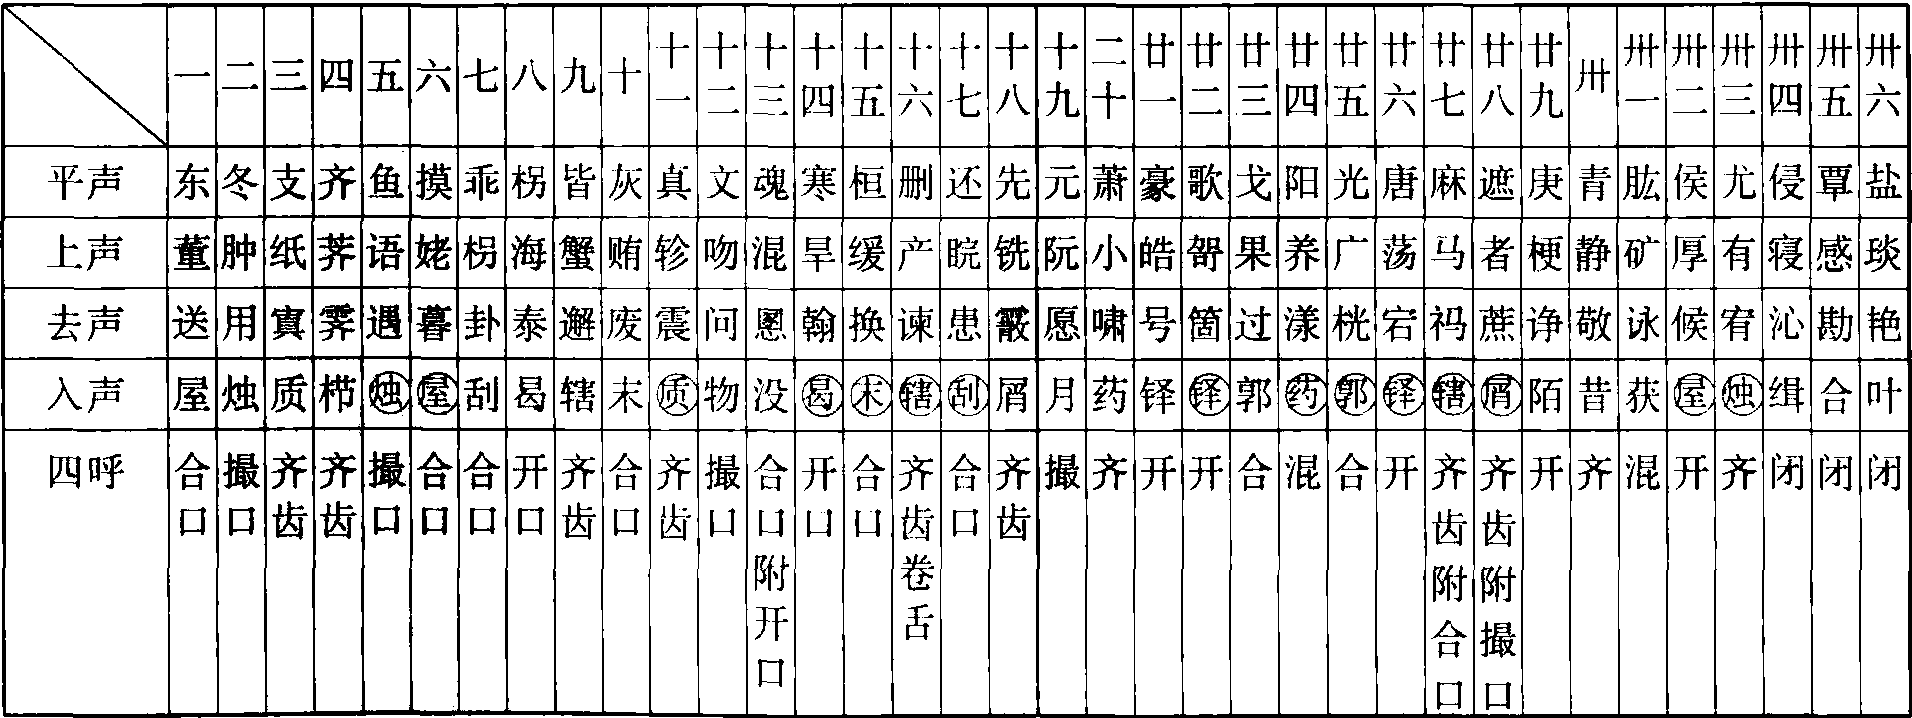 一 二 三 四 五 六 七 八 九 十 十一 十二 十三 十四 十五 十六 十七 十八 十九 二十 廿一 廿二 廿三 廿四 廿五 廿六 廿七 廿八 廿九 卅 卅一 卅二 卅三 卅四 卅五 卅六
平声 东 冬 支 齐 鱼 摸 乖 柺 皆 灰 真 文 魂 寒 桓 删 还 先 元 萧 豪 歌 戈 阳 光 唐 麻 遮 庚 青 肱 侯 尤 侵 覃 盐
上声 董 肿 纸 荠 语 姥 柺 海 蟹 贿 轸 吻 混 旱 缓 产 睆 铣 阮 小 皓 哿 果 养 广 荡 马 者 梗 静 矿 厚 有 寝 感 琰
去声 送 用 寘 霁 遇 暮 卦 泰 邂 废 震 问 慁 翰 换 谏 患 霰 愿 啸 号 箇 过 漾 桄 宕 祃 蔗 诤 敬 泳 候 宥 沁 勘 艳
入声 屋 烛 质 栉 烛 屋 刮 曷 辖 末 质 物 没 曷 末 辖 刮 屑 月 药 铎 铎 郭 药 郭 铎 辖 屑 陌 昔 获 屋 烛 缉 合 叶
四呼 合口 撮口 齐齿 齐齿 撮口 合口 合口 开口 齐齿 合口 齐齿 撮口 合口附开口 开口 合口 齐齿卷舌 合口 齐齿 撮 齐 开 开 合 混 合 开 齐齿附合口 齐齿附撮口 开 齐 混 开 齐 闭 闭 闭